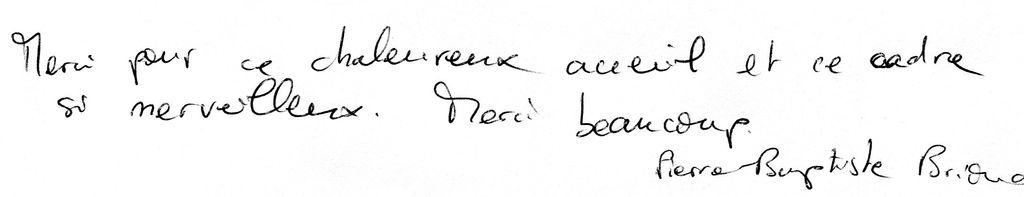 Merci pour ce chaleureux acceuil et ce cadre
si merveilleux. Merci beaucoup.
Pierre-Baptiste